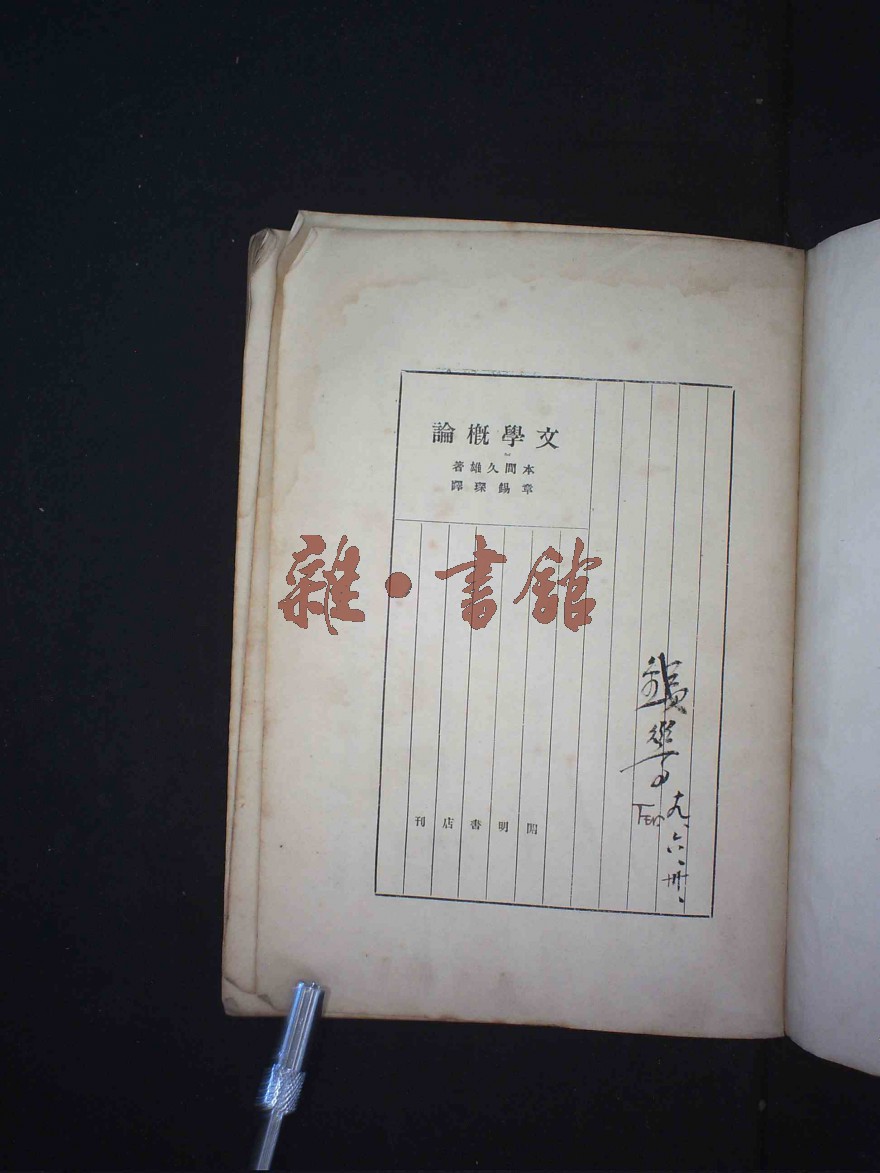 文學概論
本間久雄著
章錫琛譯
雜·書館
開明書店刊
九、六、卅、